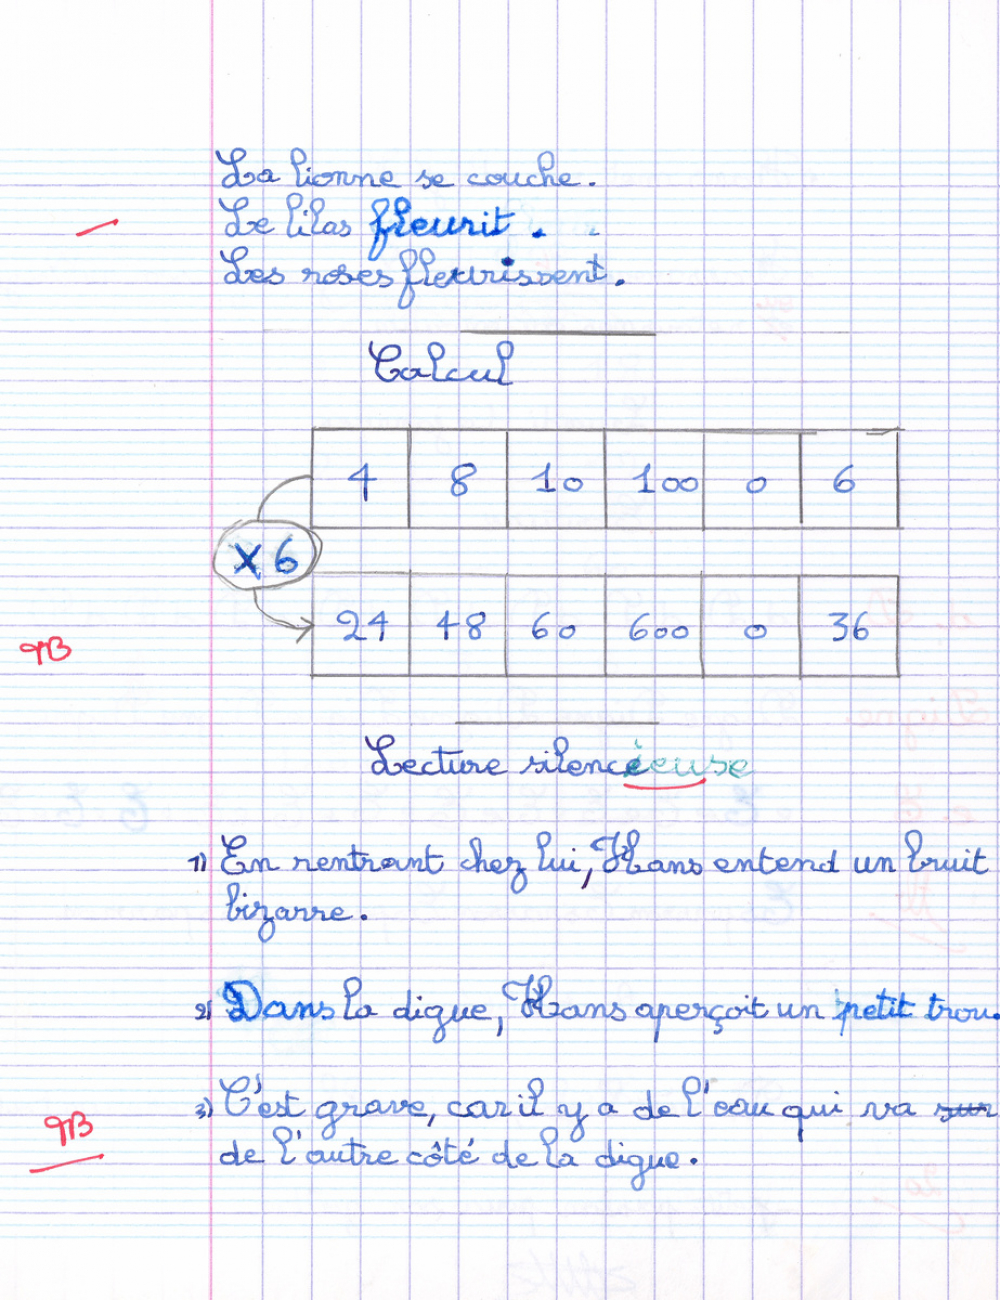 La lionne se couche.
Le lilas fleurit.
Les roses fleurissent.
Calcul
4 8 10 100 0 6
x 6
24 48 60 600 0 36
TB
Lecture silencieuse
1) En rentrant chez lui, Hans entend un bruit
bizarre.
2) Dans la digue, Hans aperçoit un petit trou.
3) C'est grave, car il y a de l'eau qui va sur
TB
de l'autre côté de la digue.